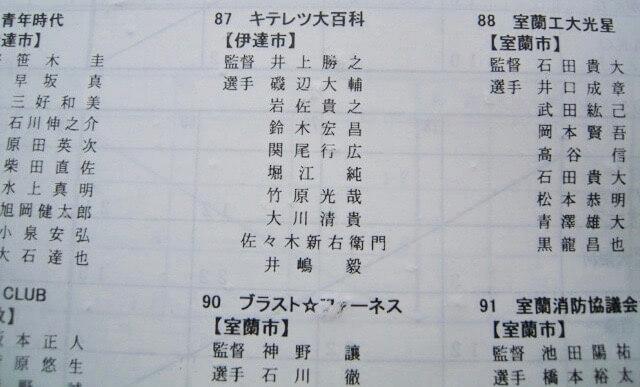 青年時代
達市】
笹木 圭
早坂 真
三好和美
石川伸之介
原田英次
柴田直佐
水上真明
旭岡健太郎
小泉安弘
大石達也
CLUB
】
本正人
原悠生
野 誠
87 キテレツ大百科
【伊達市】
監督 井上勝之
選手 磯辺大輔
岩佐貴之
鈴木宏昌
関尾行広
堀江 純
竹原光哉
大川清貴
佐々木新右衛門
井嶋毅
90 ブラスト☆ファーネス
【室蘭市】
監督 神野 譲
選手 石川 徹
88 室蘭工大光星
【室蘭市】
監督 石田貴大
選手 井口成章
武田紘己
岡本賢吾
高谷 信
石田貴大
松本恭明
青澤雄大
黒龍昌也
91 室蘭消防協議会
【室蘭市】
監督 池田陽祐
選手 橋本裕太